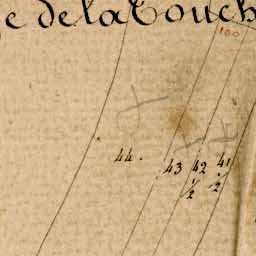 e de la Touch
100
44. 43 42 41
½ ½